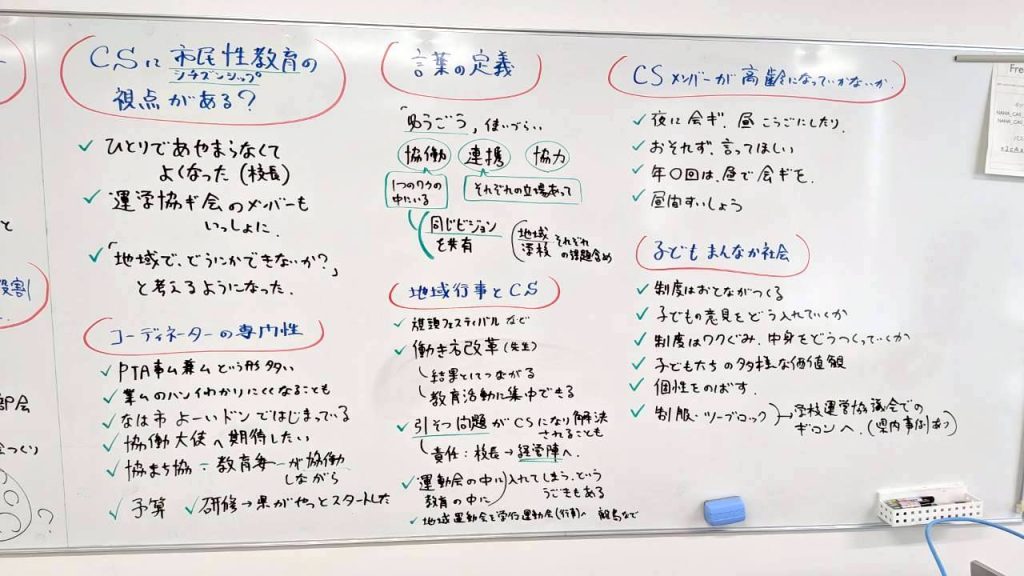 CSに市民性教育の
シチズンシップ
視点がある?
✓ ひとりであやまらなくて
よくなった(校長)
✓ 運学協ギ会のメンバーも
いっしょに.
✓ 「地域で、どうにかできないか?」
と考えるようになった.
コーディネーターの専門性
✓ PTA事ム兼ムという形多い
✓ 業ムのハンイわかりにくくなることも
✓ なは市 よーいドンではじまっている
✓ 協働大使へ期待したい
✓ 協まち協
教育委ーが協働
しながら
✓ 予算 ✓ 研修→県がやっとスタートした
言葉の定義
使いづらい
協働 連携 協力
1つのワクの
中にいる
それぞれの立場あって
同じビジョン
を共有
地域
学校
それぞれ
の課題含め
地域行事とCS
✓ 旗頭フェスティバルなど
✓ 働き方改革(先生)
結果としてつながる
教育活動に集中できる
✓ 引そつ問題がCSになり解決
されることも
責任:校長→経営陣へ.
✓ 運動会の中に
教育の中に
入れてしまう、という
うごきもある
✓ 地域運動会と学校運動会(行事)へ
など
CSメンバーが高齢になっていかないか.
✓ 夜に会ギ、昼こうごにしたり.
✓ おそれず、言ってほしい
✓ 年〇回は、昼で会ギを.
✓ 昼間すいしょう
子どもまんなか社会
✓ 制度はおとながつくる
✓ 子どもの意見をどう入れていくか
✓ 制度はワクぐみ、中身をどうつくっていくか
✓ 子どもたちの多様な価値観
✓ 個性をのばす.
✓ 制服・ツーブロック→学校運営協議会での
ギロンへ.(県内事例あり)
役割
部会
?
Fre